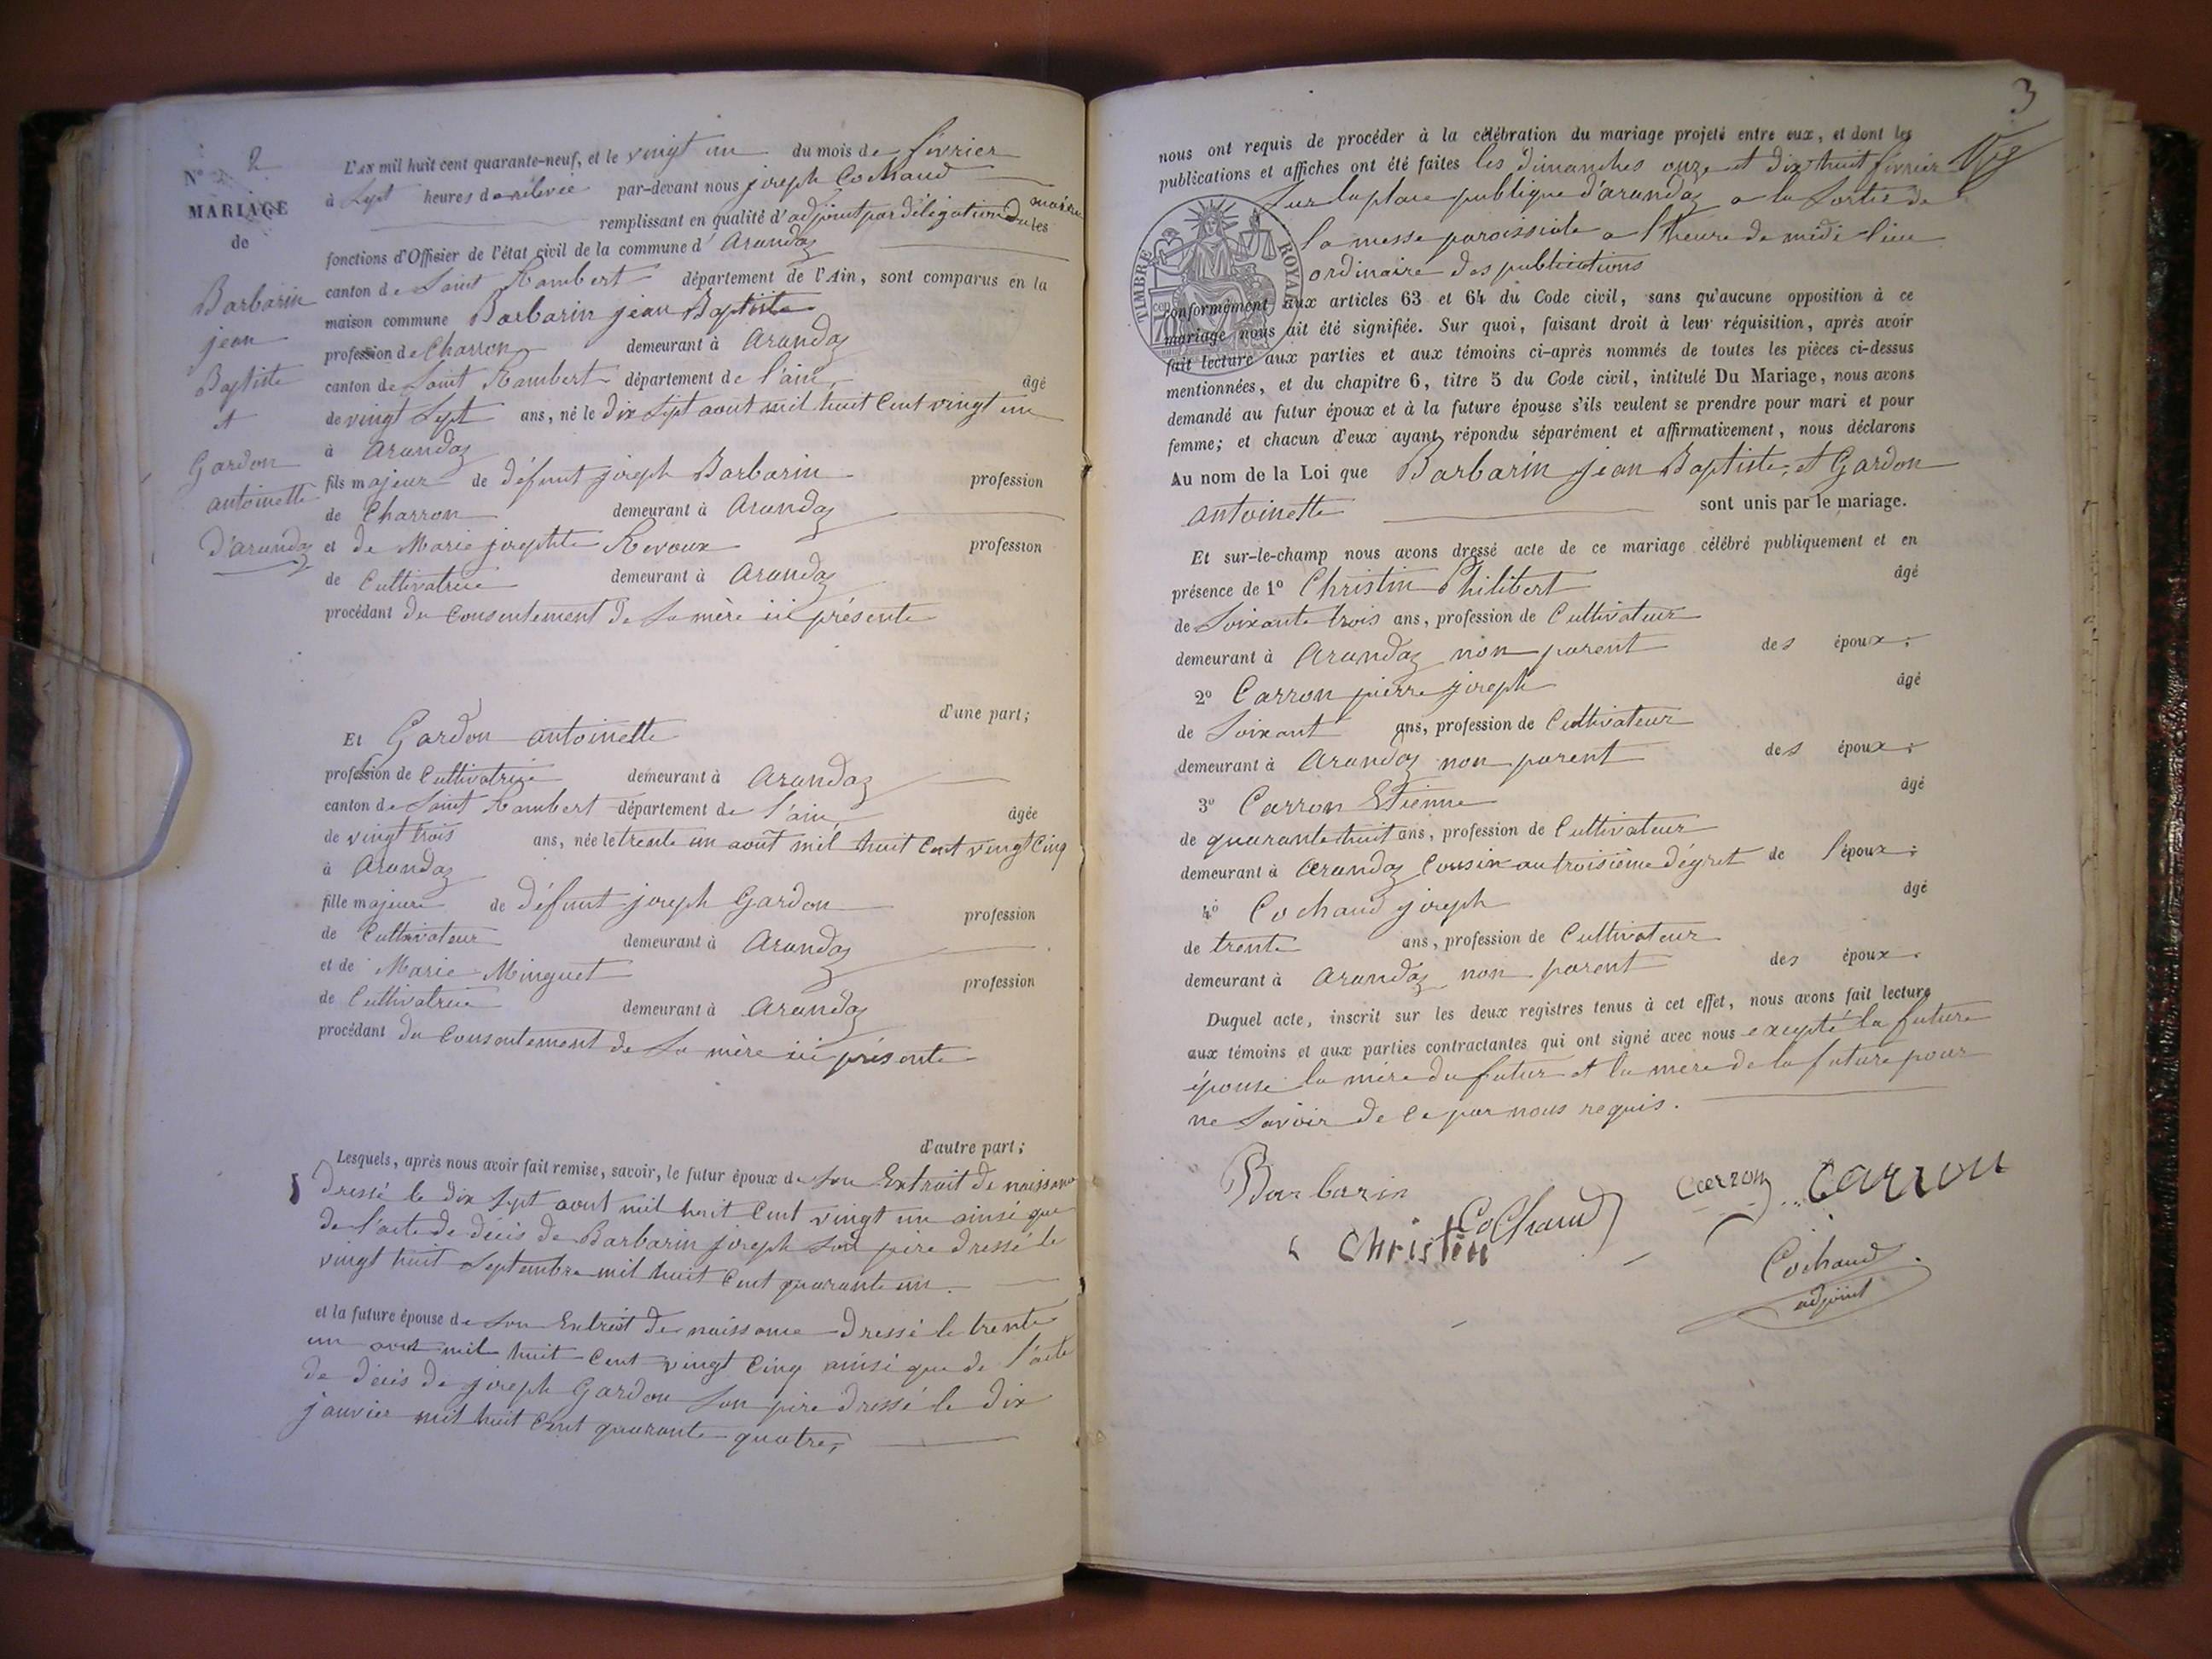 N° 2
MARIAGE
de
Barbarin
jean
Baptiste
et
Gardon
antoinette
d'arandaz
L'AN mil huit cent quarante-neuf, et le vingt un du mois de février
à Sept heures de relevée par-devant nous joseph Cochaud
remplissant en qualité d'adjoint par délégation du maire les
fonctions d'Officier de l'état civil de la commune d'Arandaz
canton de Saint Rambert département de l'Ain, sont comparus en la
maison commune Barbarin jean Baptiste
profession de Charron demeurant à Arandaz
canton de Saint Rambert département de l'ain, âgé
de vingt Sept ans, né le dix Sept aout mil huit Cent vingt un
à Arandaz
fils majeur de défunt joseph Barbarin profession
de Charron demeurant à Arandaz
et de Marie josephte Revoux profession
de Cultivatrice demeurant à Arandaz
procédant du Consentement de Sa mère ici présente
d'une part;
Et Gardon antoinette
profession de Cultivatrice demeurant à Arandaz
canton de Saint Rambert département de l'ain, âgée
de vingt trois ans, née le trente un août mil huit Cent vingt Cinq
à Arandaz
fille majeure de défunt joseph Gardon profession
de Cultivateur demeurant à Arandaz
et de Marie Minguet profession
de Cultivatrice demeurant à Arandaz
procédant du Consentement de Sa mère ici présente
d'autre part;
Lesquels, après nous avoir fait remise, savoir, le futur époux de Son Extrait de naissance
dressé le dix Sept aout mil huit Cent vingt un ainsi que
de l'acte de décès de Barbarin joseph Son père dressé le
vingt huit Septembre mil huit Cent quarante un.
et la future épouse de Son Extrait de naissance dressé le trente
un aout mil huit Cent vingt Cinq ainsi que de l'acte
de décès de joseph Gardon Son père dressé le dix
janvier mil huit Cent quarante quatre,
3
nous ont requis de procéder à la célébration du mariage projeté entre eux, et dont les
publications et affiches ont été faites les dimanches onze et dix huit février
Sur la place publique d'arandaz a la Sortie de
la messe paroissiale a l'heure de midi lieu
ordinaire des publications
TIMBRE ROYAL
70
conformément aux articles 63 et 64 du Code civil, sans qu'aucune opposition à ce
mariage nous ait été signifiée. Sur quoi, faisant droit à leur réquisition, après avoir
fait lecture aux parties et aux témoins ci-après nommés de toutes les pièces ci-dessus
mentionnées, et du chapitre 6, titre 5 du Code civil, intitulé Du Mariage, nous avons
demandé au futur époux et à la future épouse s'ils veulent se prendre pour mari et pour
femme; et chacun d'eux ayant répondu séparément et affirmativement, nous déclarons
Au nom de la Loi que Barbarin jean Baptiste, et Gardon
antoinette sont unis par le mariage.
Et sur-le-champ nous avons dressé acte de ce mariage célébré publiquement et en
présence de 1° Christin Philibert âgé
de Soixante trois ans, profession de Cultivateur
demeurant à Arandaz non parent des époux;
2° Carron pierre joseph âgé
de Soixant ans, profession de Cultivateur
demeurant à Arandaz non parent des époux;
3° Carron Etienne âgé
de quarante huit ans, profession de Cultivateur
demeurant à Arandaz Cousin au troisième dégret de l'époux;
4° Cochaud joseph âgé
de trente ans, profession de Cultivateur
demeurant à Arandaz non parent des époux.
Duquel acte, inscrit sur les deux registres tenus à cet effet, nous avons fait lecture
aux témoins et aux parties contractantes qui ont signé avec nous excepté la future
épouse la mère du futur et la mère de la future pour
ne Savoir de ce par nous requis.
Barbarin Cochaud Carron Carron
Christin
Cochaud
adjoint